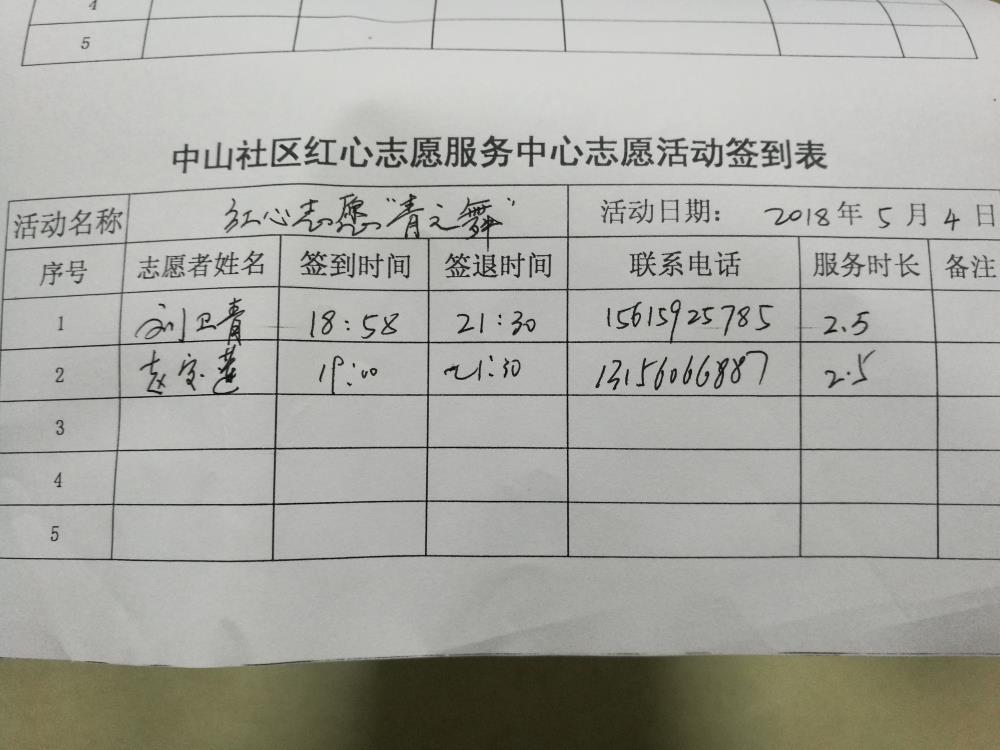 4
5
中山社区红心志愿服务中心志愿活动签到表
活动名称 红心志愿“青之舞” 活动日期： 2018年 5 月 4 日
序号 志愿者姓名 签到时间 签退时间 联系电话 服务时长 备注
1 刘卫青 18:58 21:30 15615925785 2.5
2 赵宝莲 19:00 21:30 13156066887 2.5
3
4
5